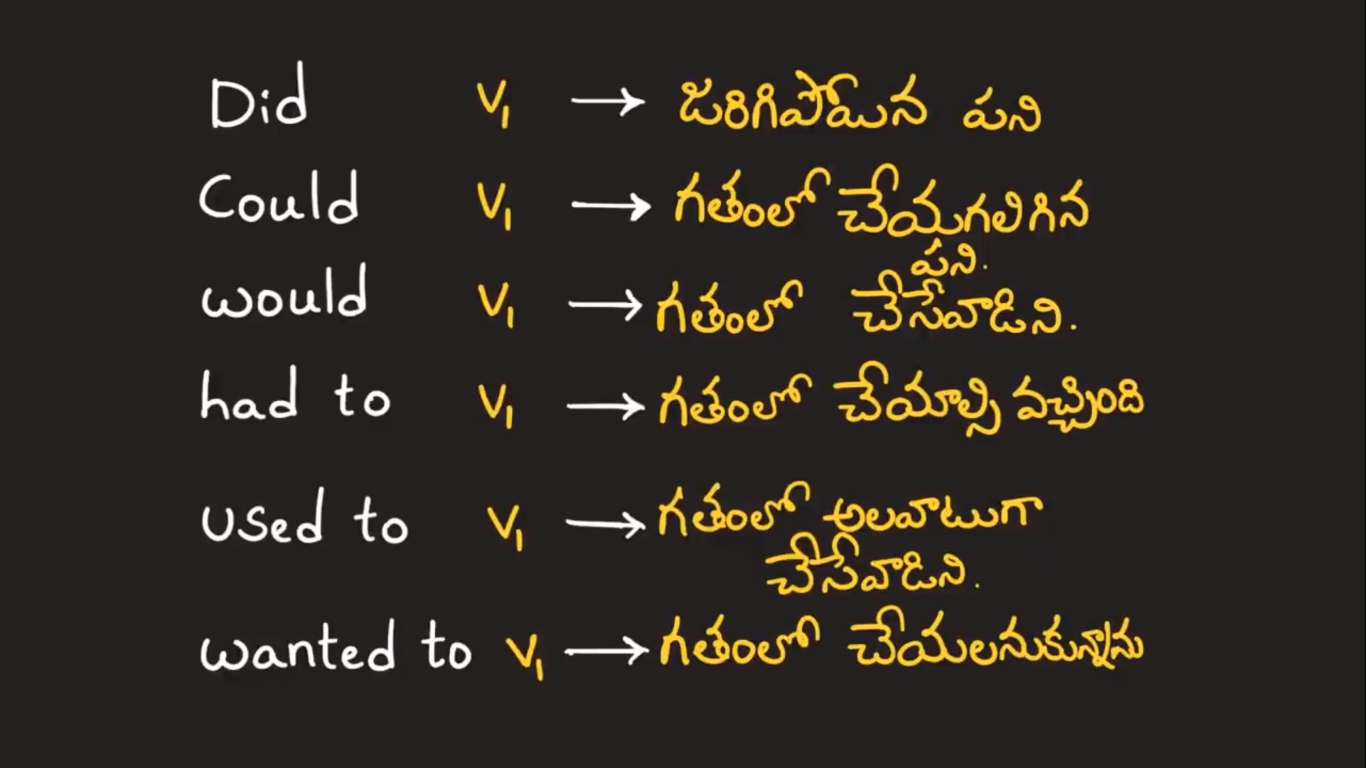 Did V₁ → జరిగిపోయిన పని
Could V₁ → గతంలో చేయగలిగిన
పని.
would V₁ → గతంలో చేసేవాడిని.
had to V₁ → గతంలో చేయాల్సి వచ్చింది
used to V₁ → గతంలో అలవాటుగా
చేసేవాడిని.
wanted to V₁ → గతంలో చేయలనుకున్నాను